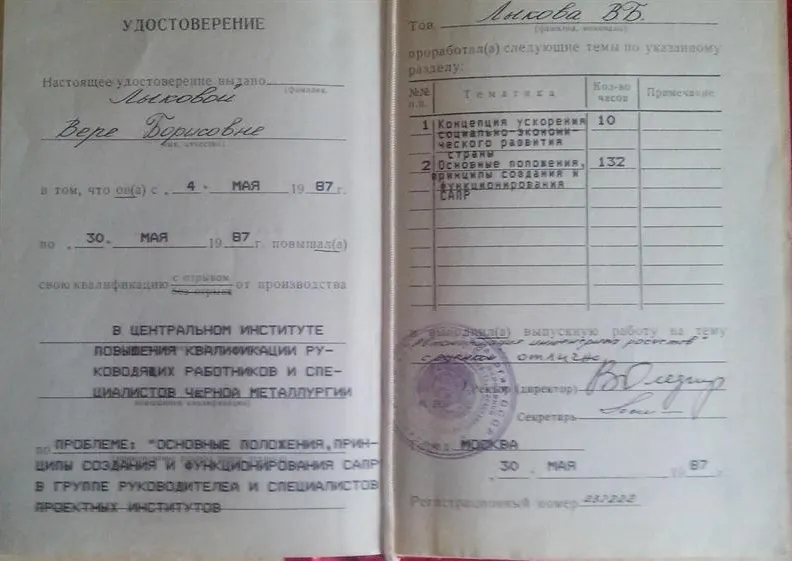 УДОСТОВЕРЕНИЕ
Настоящее удостоверение выдано
(фамилия,
Лыковой
Вере Борисовне
имя, отчество)
в том, что он(а) с „ 4 “ МАЯ 1987 г.
по „ 30 “ МАЯ 1987 г. повышал(а)
свою квалификацию с отрывом от производства
без отрыва
В ЦЕНТРАЛЬНОМ ИНСТИТУТЕ
ПОВЫШЕНИЯ КВАЛИФИКАЦИИ РУ-
КОВОДЯЩИХ РАБОТНИКОВ И СПЕ-
ЦИАЛИСТОВ ЧЕРНОЙ МЕТАЛЛУРГИИ
повышения квалификации)
по ПРОБЛЕМЕ: "ОСНОВНЫЕ ПОЛОЖЕНИЯ, ПРИН-
ЦИПЫ СОЗДАНИЯ И ФУНКЦИОНИРОВАНИЯ САПР
В ГРУППЕ РУКОВОДИТЕЛЕЙ И СПЕЦИАЛИСТОВ
ПРОЕКТНЫХ ИНСТИТУТОВ
Тов. Лыкова В.Б.
(фамилия, инициалы)
проработал(а) следующие темы по указанному
разделу:
№№ п.п. Тематика Кол-во часов Примечание
1 Концепция ускорения 10
социально-экономи-
ческого развития
страны
2 Основные положения, 132
принципы создания и
функционирования
САПР
и выполнил(а) выпускную работу на тему
с оценкой отлично
Ректор (директор)
Секретарь
Город МОСКВА
„ 30 “ МАЯ 1987 г.
Регистрационный номер